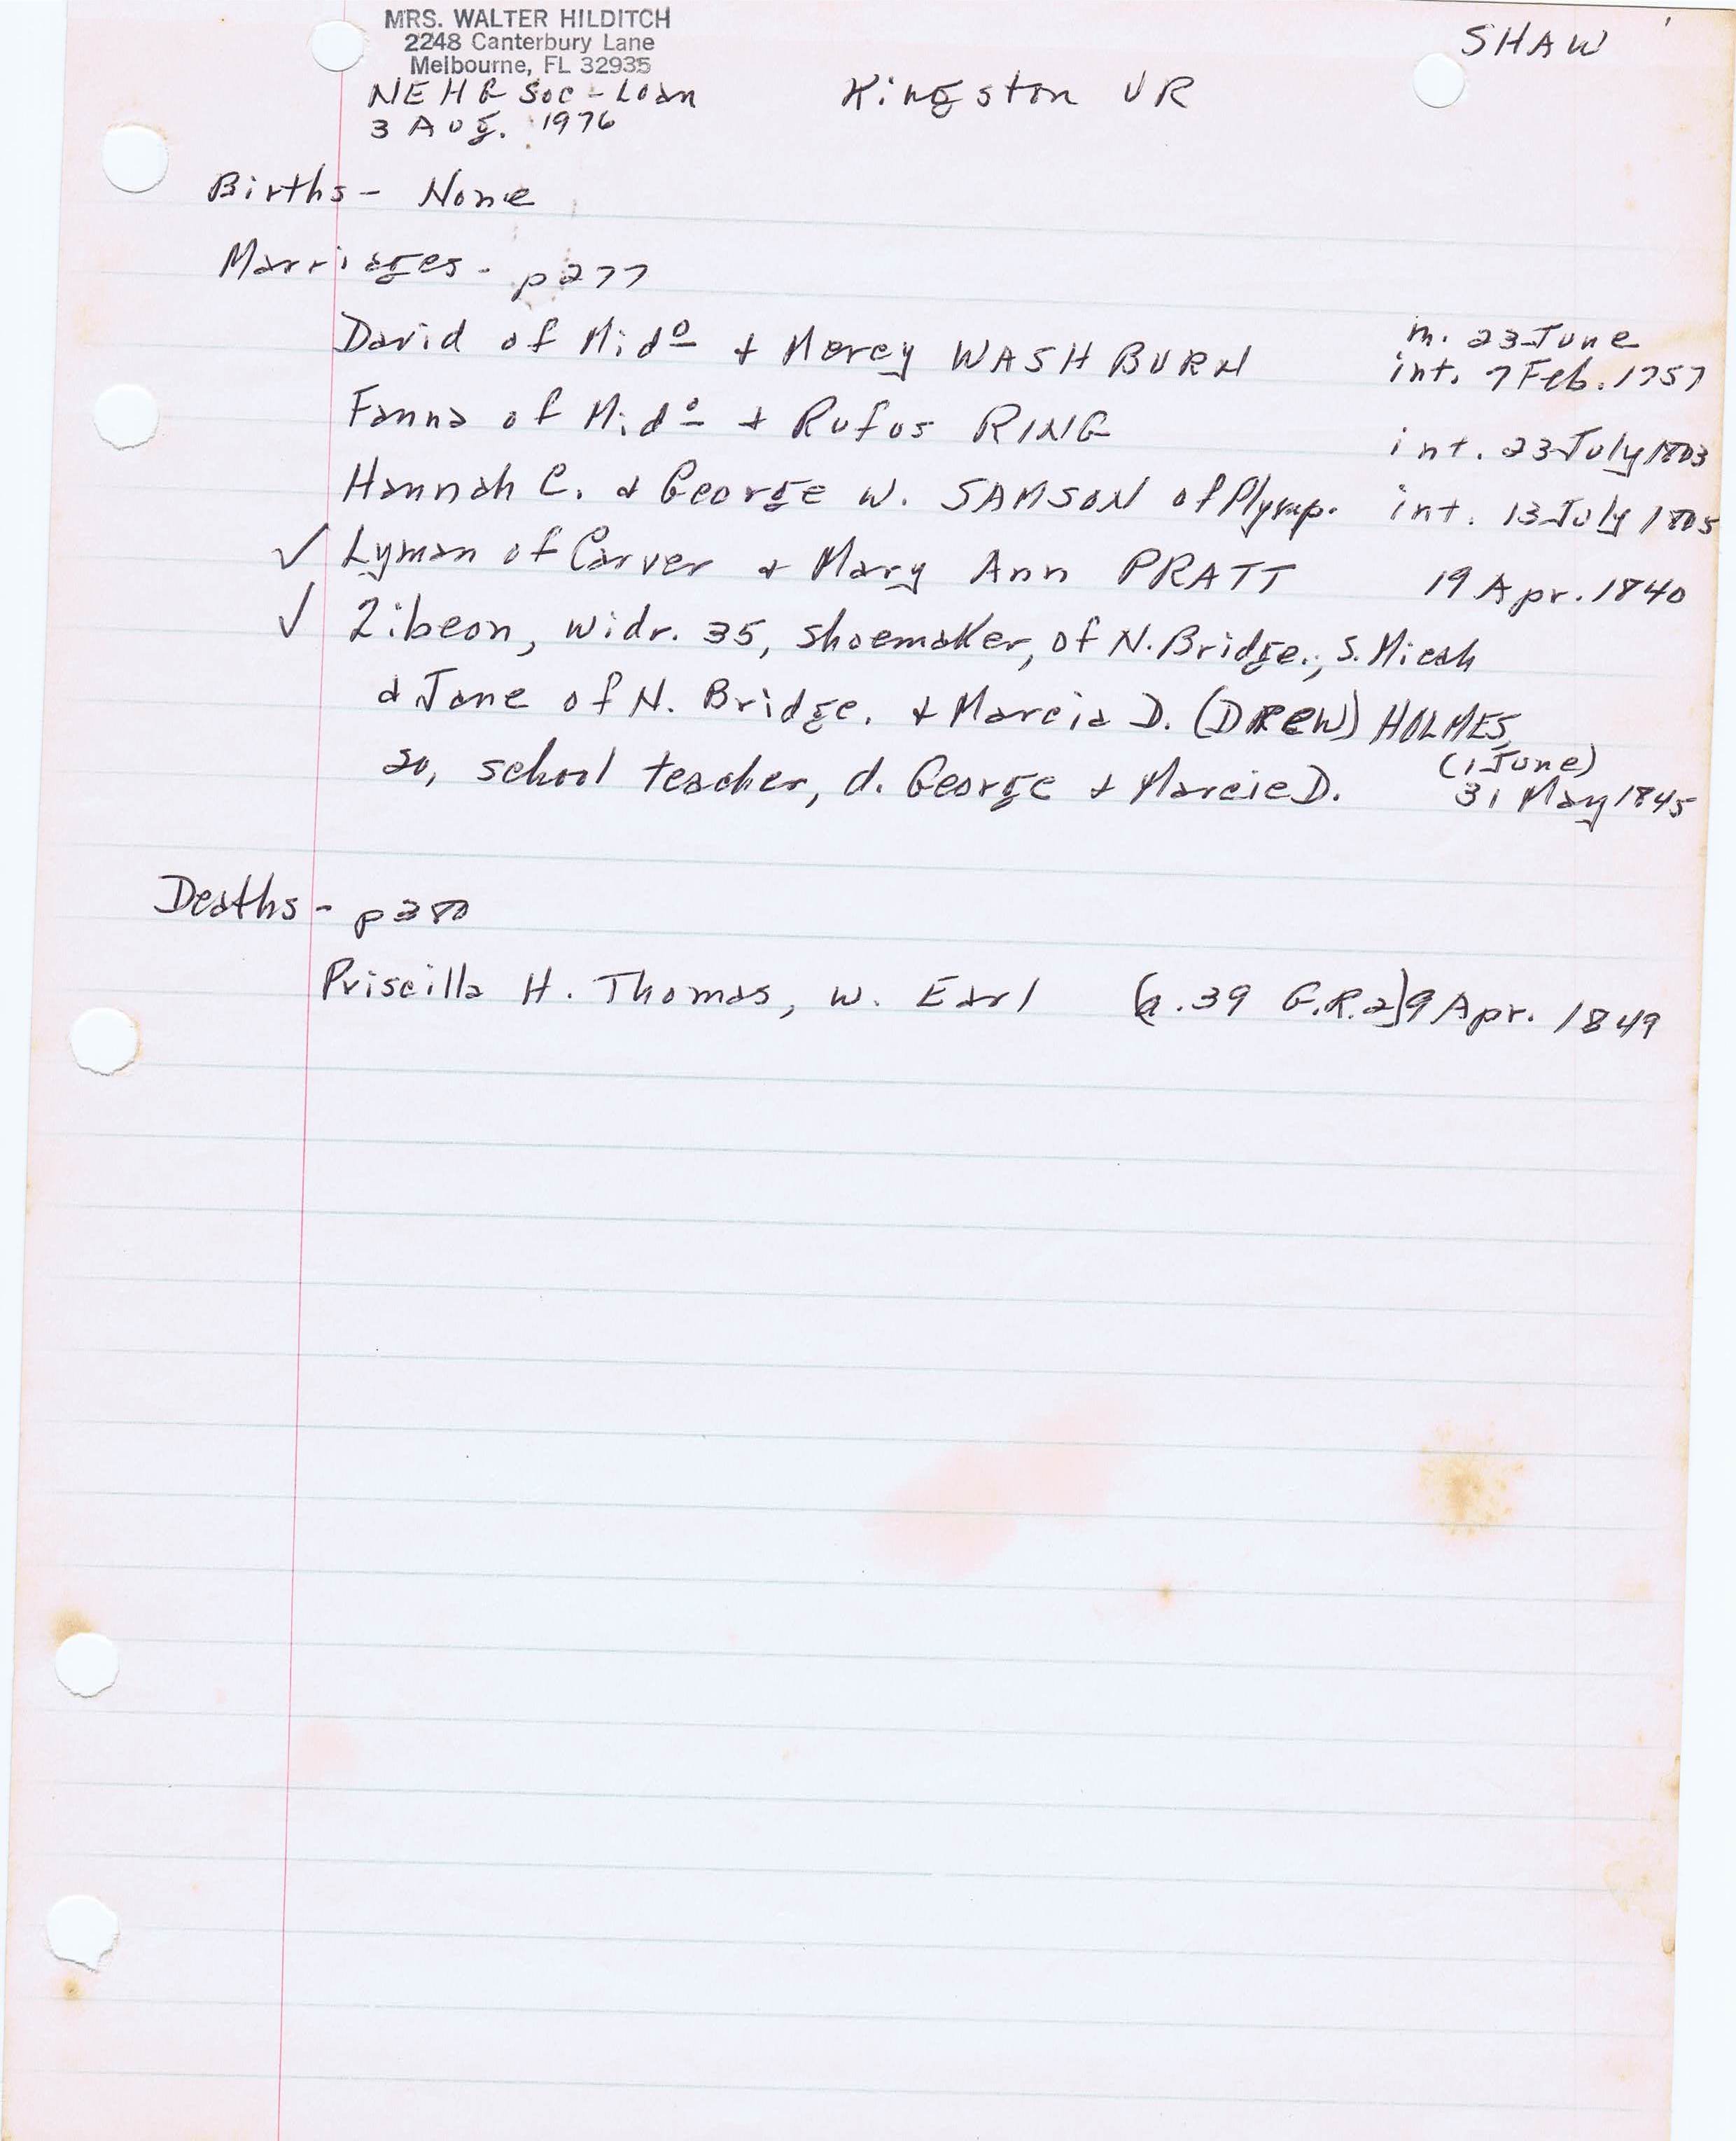 MRS. WALTER HILDITCH
2248 Canterbury Lane
Melbourne, FL 32935
SHAW
NEHG Soc - Loan
3 Aug. 1976
Kingston VR
Births - None
Marriages - p 277
David of Mido + Mercy WASHBURN m. 23 June
int. 7 Feb. 1757
Fanna of Mido + Rufus RING int. 23 July 1803
Hannah C. & George W. SAMSON of Plymp. int. 13 July 1805
✓ Lyman of Carver & Mary Ann PRATT 19 Apr. 1840
✓ Zibeon, widr. 35, shoemaker, of N. Bridge., s. Micah
& Jane of N. Bridge. + Marcia D. (DREW) HOLMES,
20, school teacher, d. George + Marcie D. (1 June)
31 May 1845
Deaths - p 380
Priscilla H. Thomas, w. Earl [a. 39 G.R.2] 9 Apr. 1849